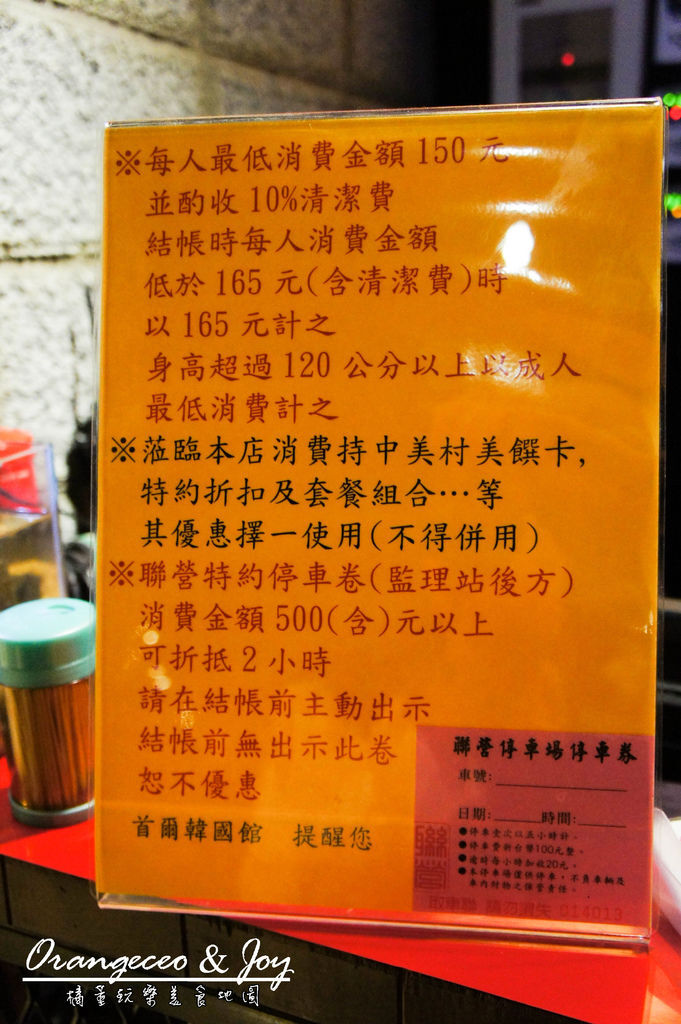 ※每人最低消費金額 150 元
並酌收 10%清潔費
結帳時每人消費金額
低於 165 元(含清潔費)時
以 165 元計之
身高超過 120 公分以上以成人
最低消費計之
※蒞臨本店消費持中美村美饌卡,
特約折扣及套餐組合…等
其優惠擇一使用(不得併用)
※聯營特約停車卷(監理站後方)
消費金額 500(含)元以上
可折抵 2 小時
請在結帳前主動出示
結帳前無出示此卷
恕不優惠
首爾韓國館 提醒您
聯營停車場停車券
車號:
日期: 時間:
●停車壹次以五小時計。
●停車費新台幣100元整。
●逾時每小時加收20元。
●本停車場僅供停車,不負車輛及
車內財物之保管責任。
聯營
取車聯 請勿遺失 014013
Orangeceo & Joy
橘董玩樂美食地圖